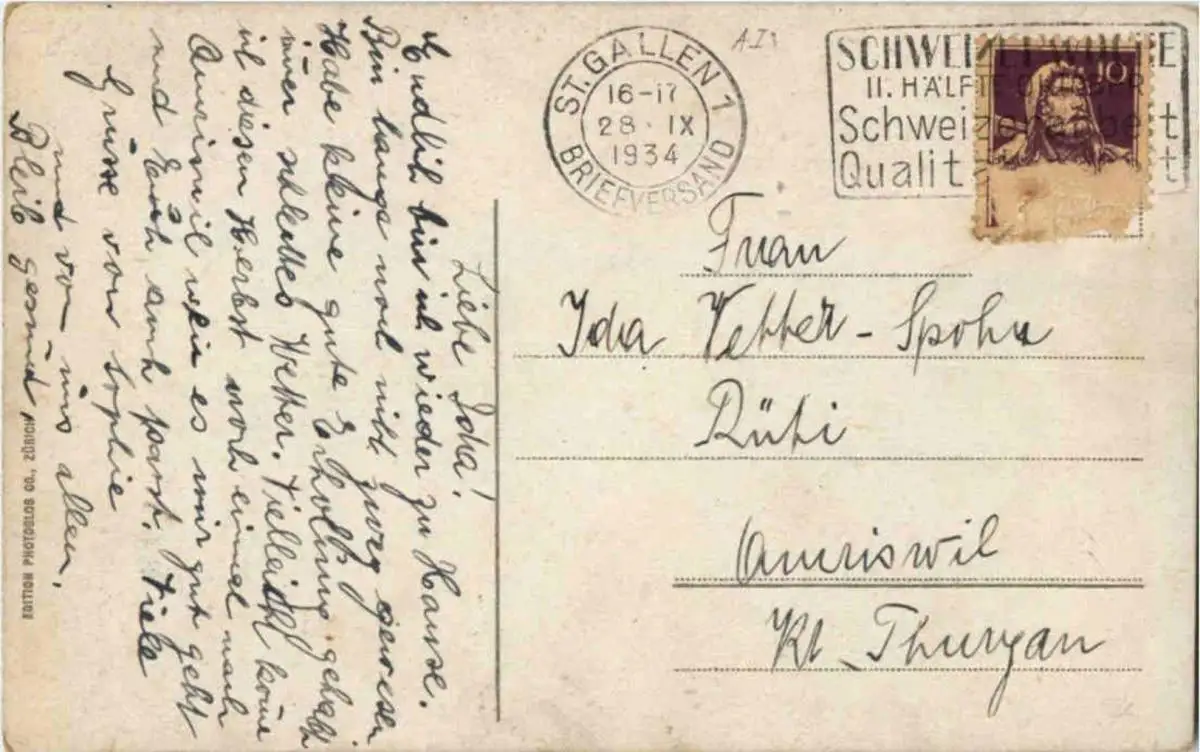 ST. GALLEN 1
16-17
28 · IX
1934
BRIEFVERSAND
SCHWEIZERWOCHE
II. HÄLFTE OKTOBER
Schweizerarbeit
Qualit t
10
Frau
Ida Vetter-Spohn
Rüti
Amriswil
Kt. Thurgau
Liebe Ida!
Endlich bin ich wieder zu Hause.
Bin lange noch nicht zweg gewesen
Habe keine gute Erholung gehabt
imer schlechtes Wetter. Vielleicht kome
ich diesen Herbst noch einmal nach
Amriswil wen es mir gut geht
und Euch auch passt. Viele
Grüsse von Sophie
und von uns allen.
Bleib gesund,
EDITION PHOTOGLOB CO., ZÜRICH